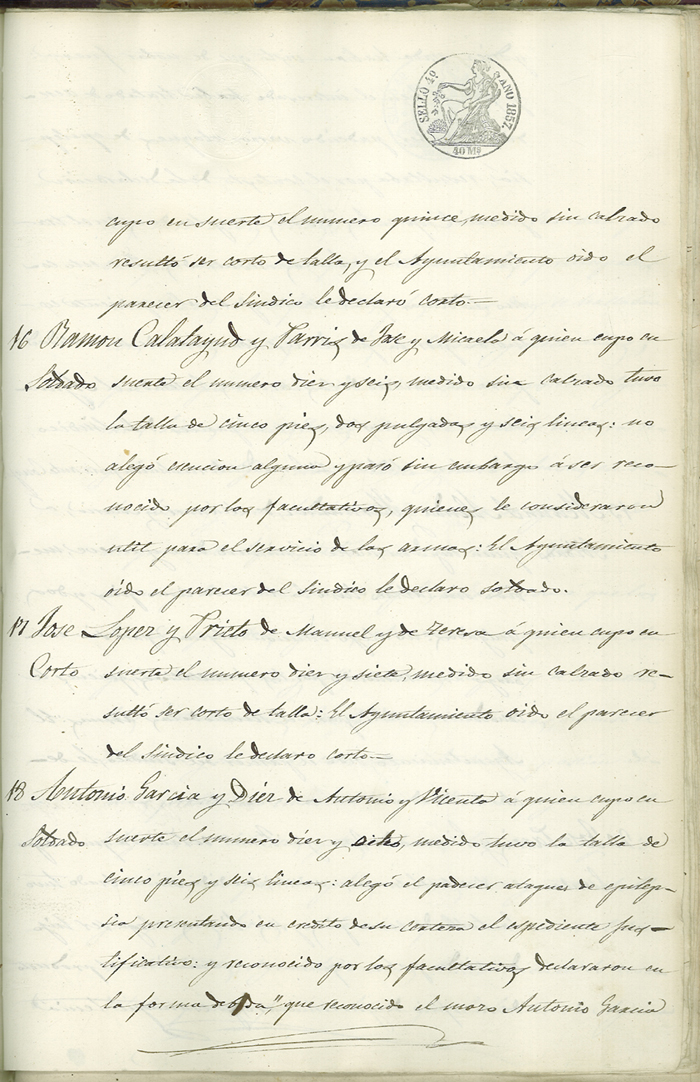 SELLO 4º AÑO 1857.
40 Ms
cupo en suerte el numero quince, medido sin calzado
resultó ser corto de talla, y el Ayuntamiento oido el
parecer del Sindico le declaró corto.—
16 Ramon Calatayud y Parris de Jose y Micaela á quien cupo en
Soldado suerte el numero diez y seis, medido sin calzado tuvo
la talla de cinco pies, dos pulgadas y seis lineas: no
alegó esencion alguna y pasó sin embargo á ser reco-
nocido por los facultativos, quienes le consideraron
util para el servicio de las armas: El Ayuntamiento
oido el parecer del Sindico le declaro soldado.
17 Jose Lopez y Prieto de Manuel y de Teresa á quien cupo en
Corto suerte el numero diez y siete, medido sin calzado re-
sultó ser corto de talla: El Ayuntamiento oido el parecer
del Sindico le declaro corto—
18 Antonio Garcia y Diéz de Antonio y Vicenta á quien cupo en
Soldado suerte el numero diez y ocho, medido tuvo la talla de
cinco pies y seis lineas: alegó el padecer ataques de epilep-
sia presentando en credito de su certeza el espediente jus-
tificativo: y reconocido por los facultativos declararon en
la forma debida, "que reconocido el mozo Antonio Garcia